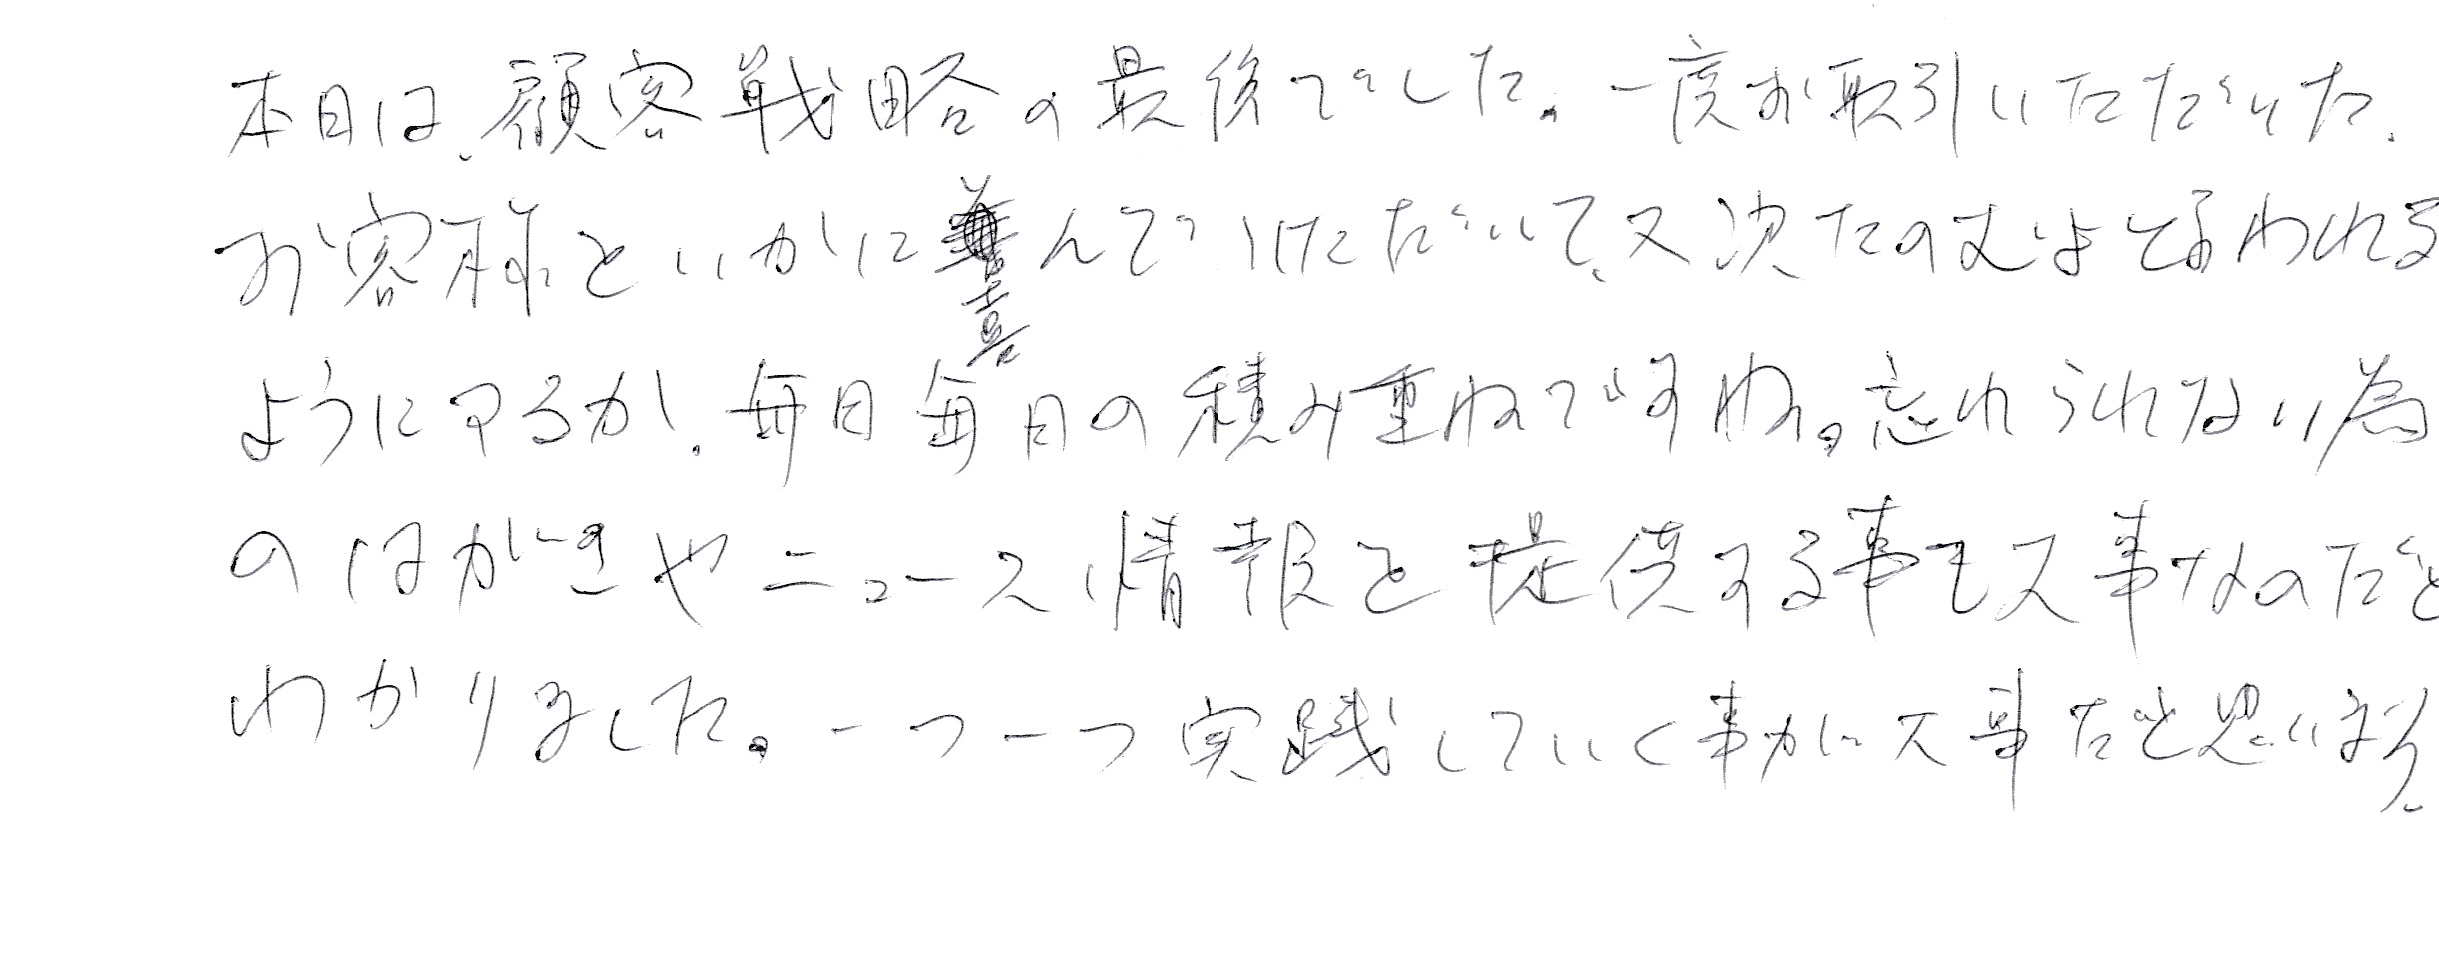 本日は、顧客戦略の最後でした。一度お取引いただいた、
お客様といかに喜んでいただだいて、又次たのむよと言われる
ようにするか、毎日毎日の積み重ねですね。忘れられない為
のはがきやニュース情報を提供する事も大事なのだと
わかりました。一つ一つ実践していく事が大事だと思います。